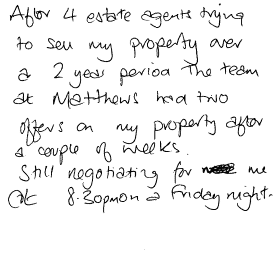 After 4 estate agents trying
to sell my property over
a 2 year period The team
at Matthews had two
offers on my property after
a couple of weeks.
Still negotiating for me
at 8.30pm on a Friday night.